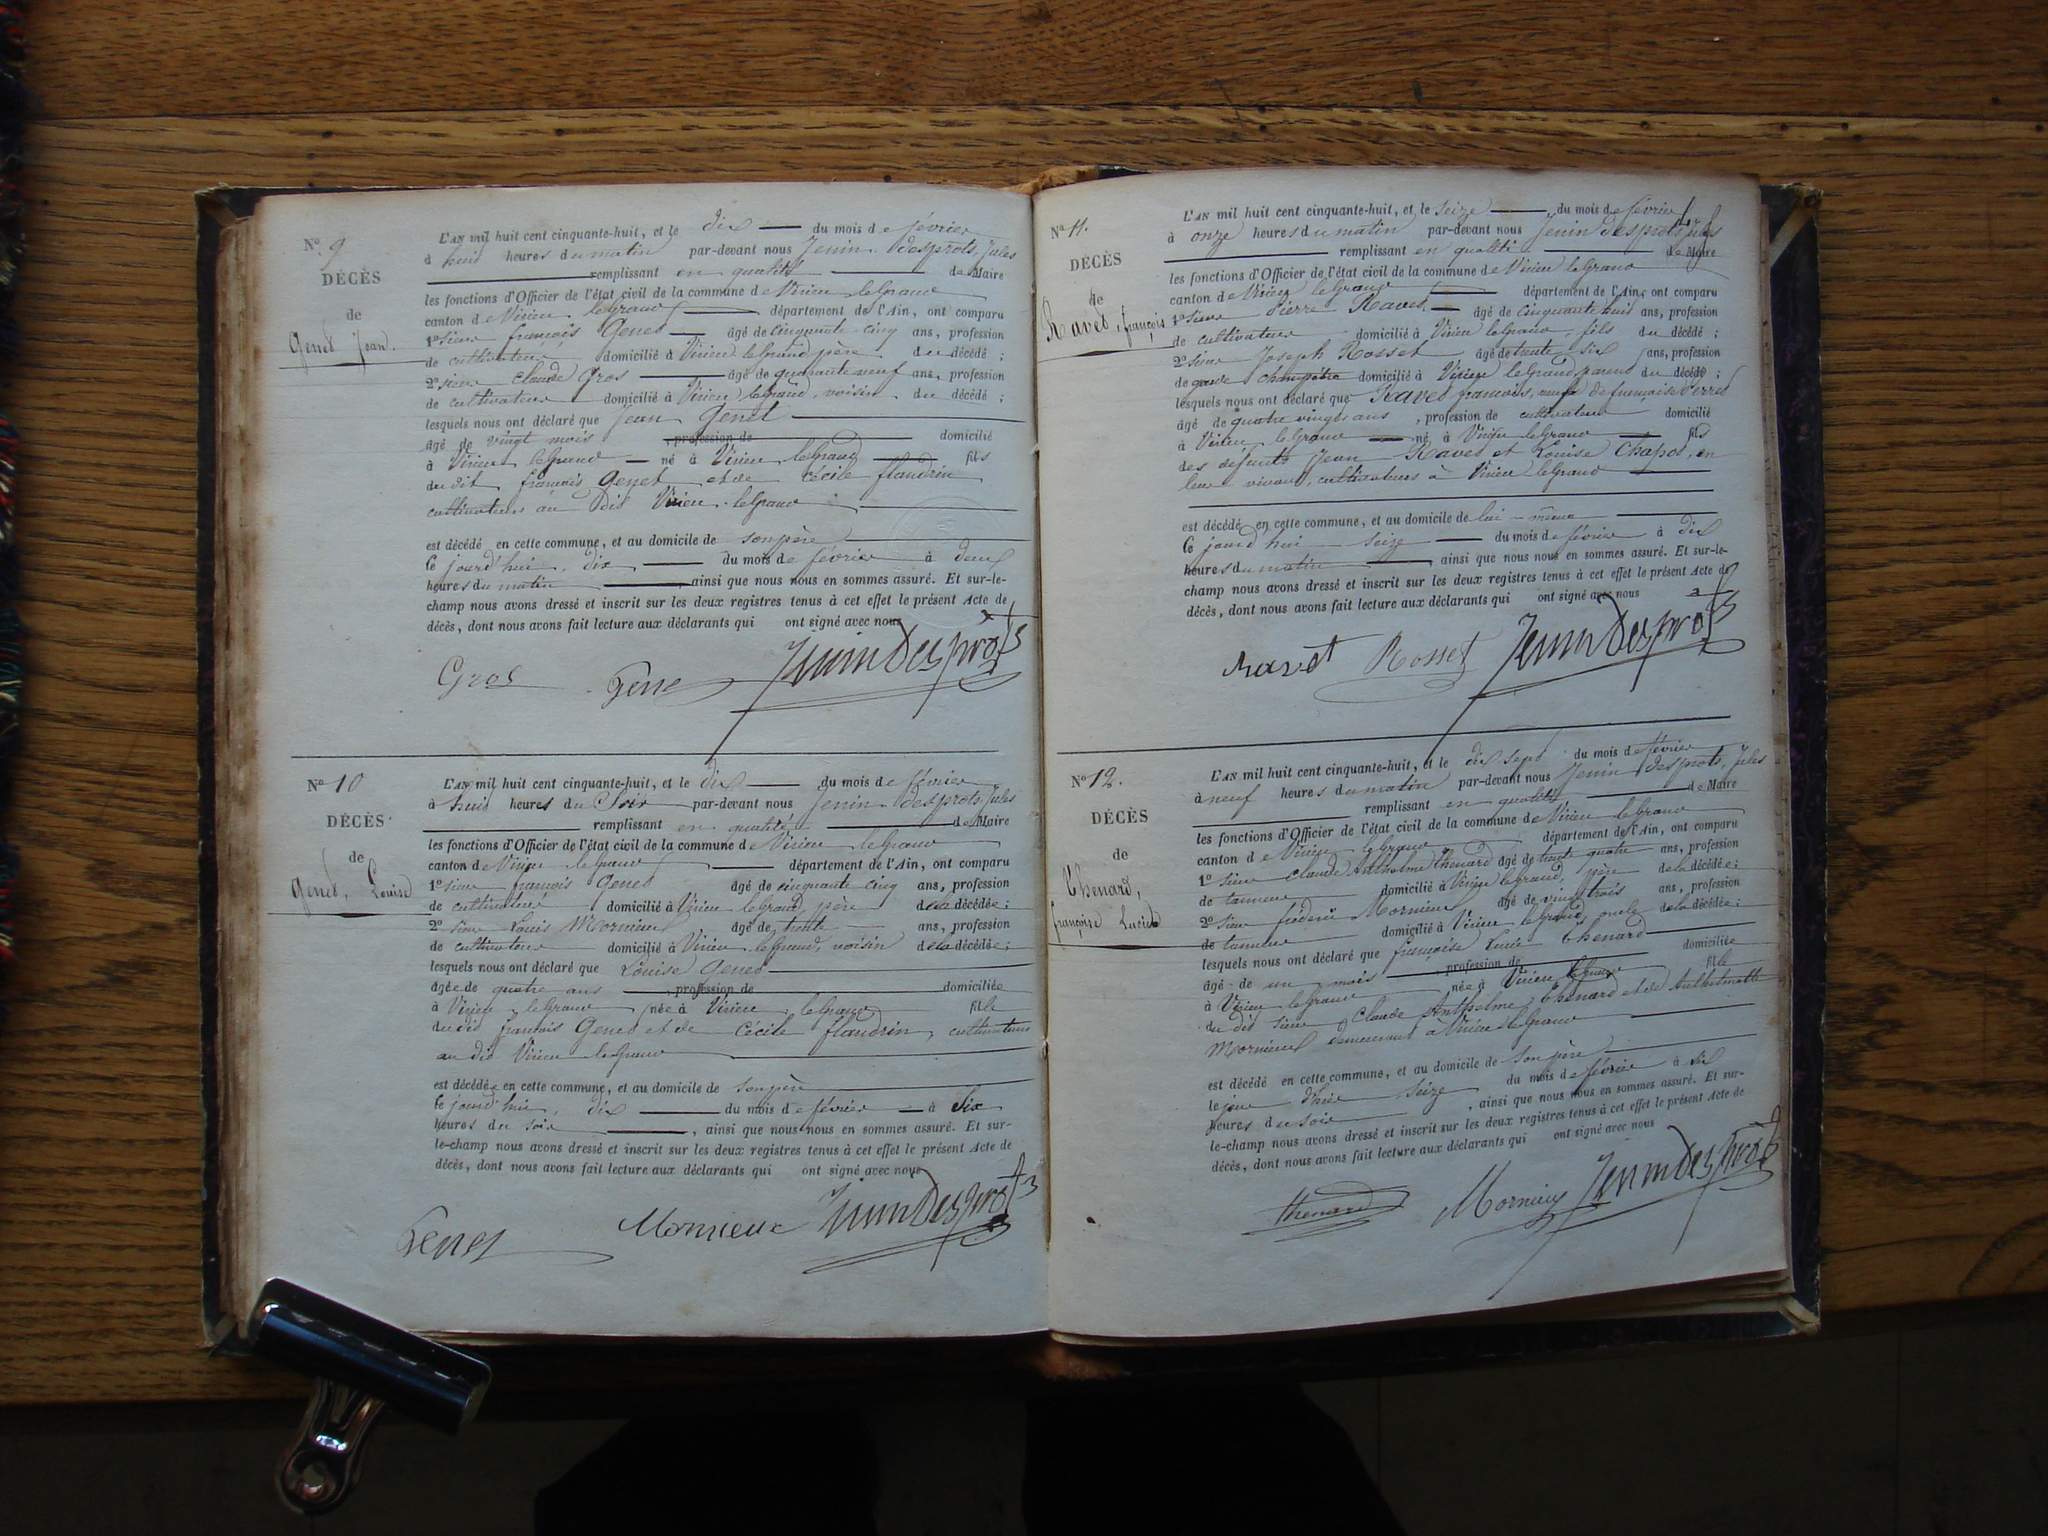 N° 9
DÉCÈS
de
Genet Jean.
L'AN mil huit cent cinquante-huit, et le dix du mois de février
à huit heures du matin par-devant nous Jenin Desprots, Jules
remplissant en qualité de Maire
les fonctions d'Officier de l'état civil de la commune de Virieu leGrand
canton de Virieu leGrand département de l'Ain, ont comparu
1° sieur françois Genet âgé de cinquante cinq ans, profession
de cultivateur domicilié à Virieu leGrand père du décédé ;
2° sieur claude Gros âgé de quarante neuf ans, profession
de cultivateur domicilié à Virieu leGrand, voisin du décédé ;
lesquels nous ont déclaré que Jean Genet
âgé de vingt mois , profession de domicilié
à Virieu leGrand né à Virieu leGrand fils
du dit françois Genet et de cécile flandrin
cultivateurs au dit Virieu-leGrand
est décédé en cette commune, et au domicile de son père
ce jourd'hui, dix du mois de février à deux
heures du matin , ainsi que nous nous en sommes assuré. Et sur-le-
champ nous avons dressé et inscrit sur les deux registres tenus à cet effet le présent Acte de
décès, dont nous avons fait lecture aux déclarants qui ont signé avec nous
Gros Genet JeninDesprots
N° 10
DÉCÈS
de
Genet, Louise
L'AN mil huit cent cinquante-huit, et le dix du mois de février
à huit heures du Soir par-devant nous Jenin Desprots, Jules
remplissant en qualité de Maire
les fonctions d'Officier de l'état civil de la commune de Virieu leGrand
canton de Virieu leGrand département de l'Ain, ont comparu
1° sieur françois Genet âgé de cinquante cinq ans, profession
de cultivateur domicilié à Virieu leGrand, père de la décédée ;
2° sieur Louis Mornieux âgé de trente ans, profession
de cultivateur domicilié à Virieu-leGrand, voisin de la décédée ;
lesquels nous ont déclaré que Louise Genet
âgée de quatre ans , profession de domiciliée
à Virieu leGrand née à Virieu leGrand fille
du dit françois Genet et de Cécile flandrin, cultivateurs
au dit Virieu leGrand
est décédée en cette commune, et au domicile de son père
ce jourd'hui, dix du mois de février à Six
heures du soir , ainsi que nous nous en sommes assuré. Et sur-
le-champ nous avons dressé et inscrit sur les deux registres tenus à cet effet le présent Acte de
décès, dont nous avons fait lecture aux déclarants qui ont signé avec nous
Genet Mornieux JeninDesprots
N° 11.
DÉCÈS
de
Ravet, françois
L'AN mil huit cent cinquante-huit, et le seize du mois de février
à onze heures du matin par-devant nous Jenin Desprots, Jules
remplissant en qualité de Maire
les fonctions d'Officier de l'état civil de la commune de Virieu leGrand
canton de Virieu leGrand département de l'Ain, ont comparu
1° sieur Pierre Ravet âgé de cinquante huit ans, profession
de cultivateur domicilié à Virieu leGrand, fils du décédé ;
2° sieur Joseph Rosset âgé de trente six ans, profession
de garde champêtre domicilié à Virieu leGrand parent du décédé ;
lesquels nous ont déclaré que Ravet françois, veuf de françoise
âgé de quatre vingts ans , profession de cultivateur domicilié
à Virieu leGrand né à Virieu leGrand fils
des défunts Jean Ravet et Louise Chapot, en
leur vivant, cultivateurs à Virieu leGrand
est décédé en cette commune, et au domicile de lui-même
ce jourd'hui seize du mois de février à dix
heures du matin , ainsi que nous nous en sommes assuré. Et sur-le-
champ nous avons dressé et inscrit sur les deux registres tenus à cet effet le présent Acte de
décès, dont nous avons fait lecture aux déclarants qui ont signé avec nous
Ravet Rosset JeninDesprots
N° 12.
DÉCÈS
de
Thenard,
françoise Lucie
L'AN mil huit cent cinquante-huit, et le dix sept du mois de février
à neuf heures du matin par-devant nous Jenin Desprots, Jules
remplissant en qualité de Maire
les fonctions d'Officier de l'état civil de la commune de Virieu leGrand
canton de Virieu leGrand département de l'Ain, ont comparu
1° sieur Claude Anthelme Thenard âgé de trente quatre ans, profession
de tanneur domicilié à Virieu leGrand, père de la décédée ;
2° sieur fréderic Mornieux âgé de vingt trois ans, profession
de tanneur domicilié à Virieu-leGrand, oncle de la décédée ;
lesquels nous ont déclaré que françoise Lucie Thenard
âgée de un mois , profession de domiciliée
à Virieu leGrand née à Virieu leGrand fille
du dit sieur Claude Anthelme Thenard et de
Mornieux demeurant à Virieu leGrand
est décédé en cette commune, et au domicile de son père
le jour d'hier seize du mois de février à six
heures du soir , ainsi que nous nous en sommes assuré. Et sur-
le-champ nous avons dressé et inscrit sur les deux registres tenus à cet effet le présent Acte de
décès, dont nous avons fait lecture aux déclarants qui ont signé avec nous
Thenard Mornieux JeninDesprots